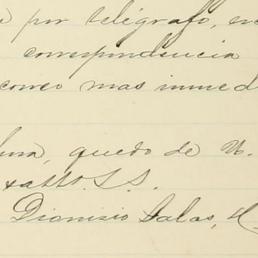 por telégrafo, en
correspondencia
correo mas inmed
quedo de U.
S.S.
Dionisio Salas, H.